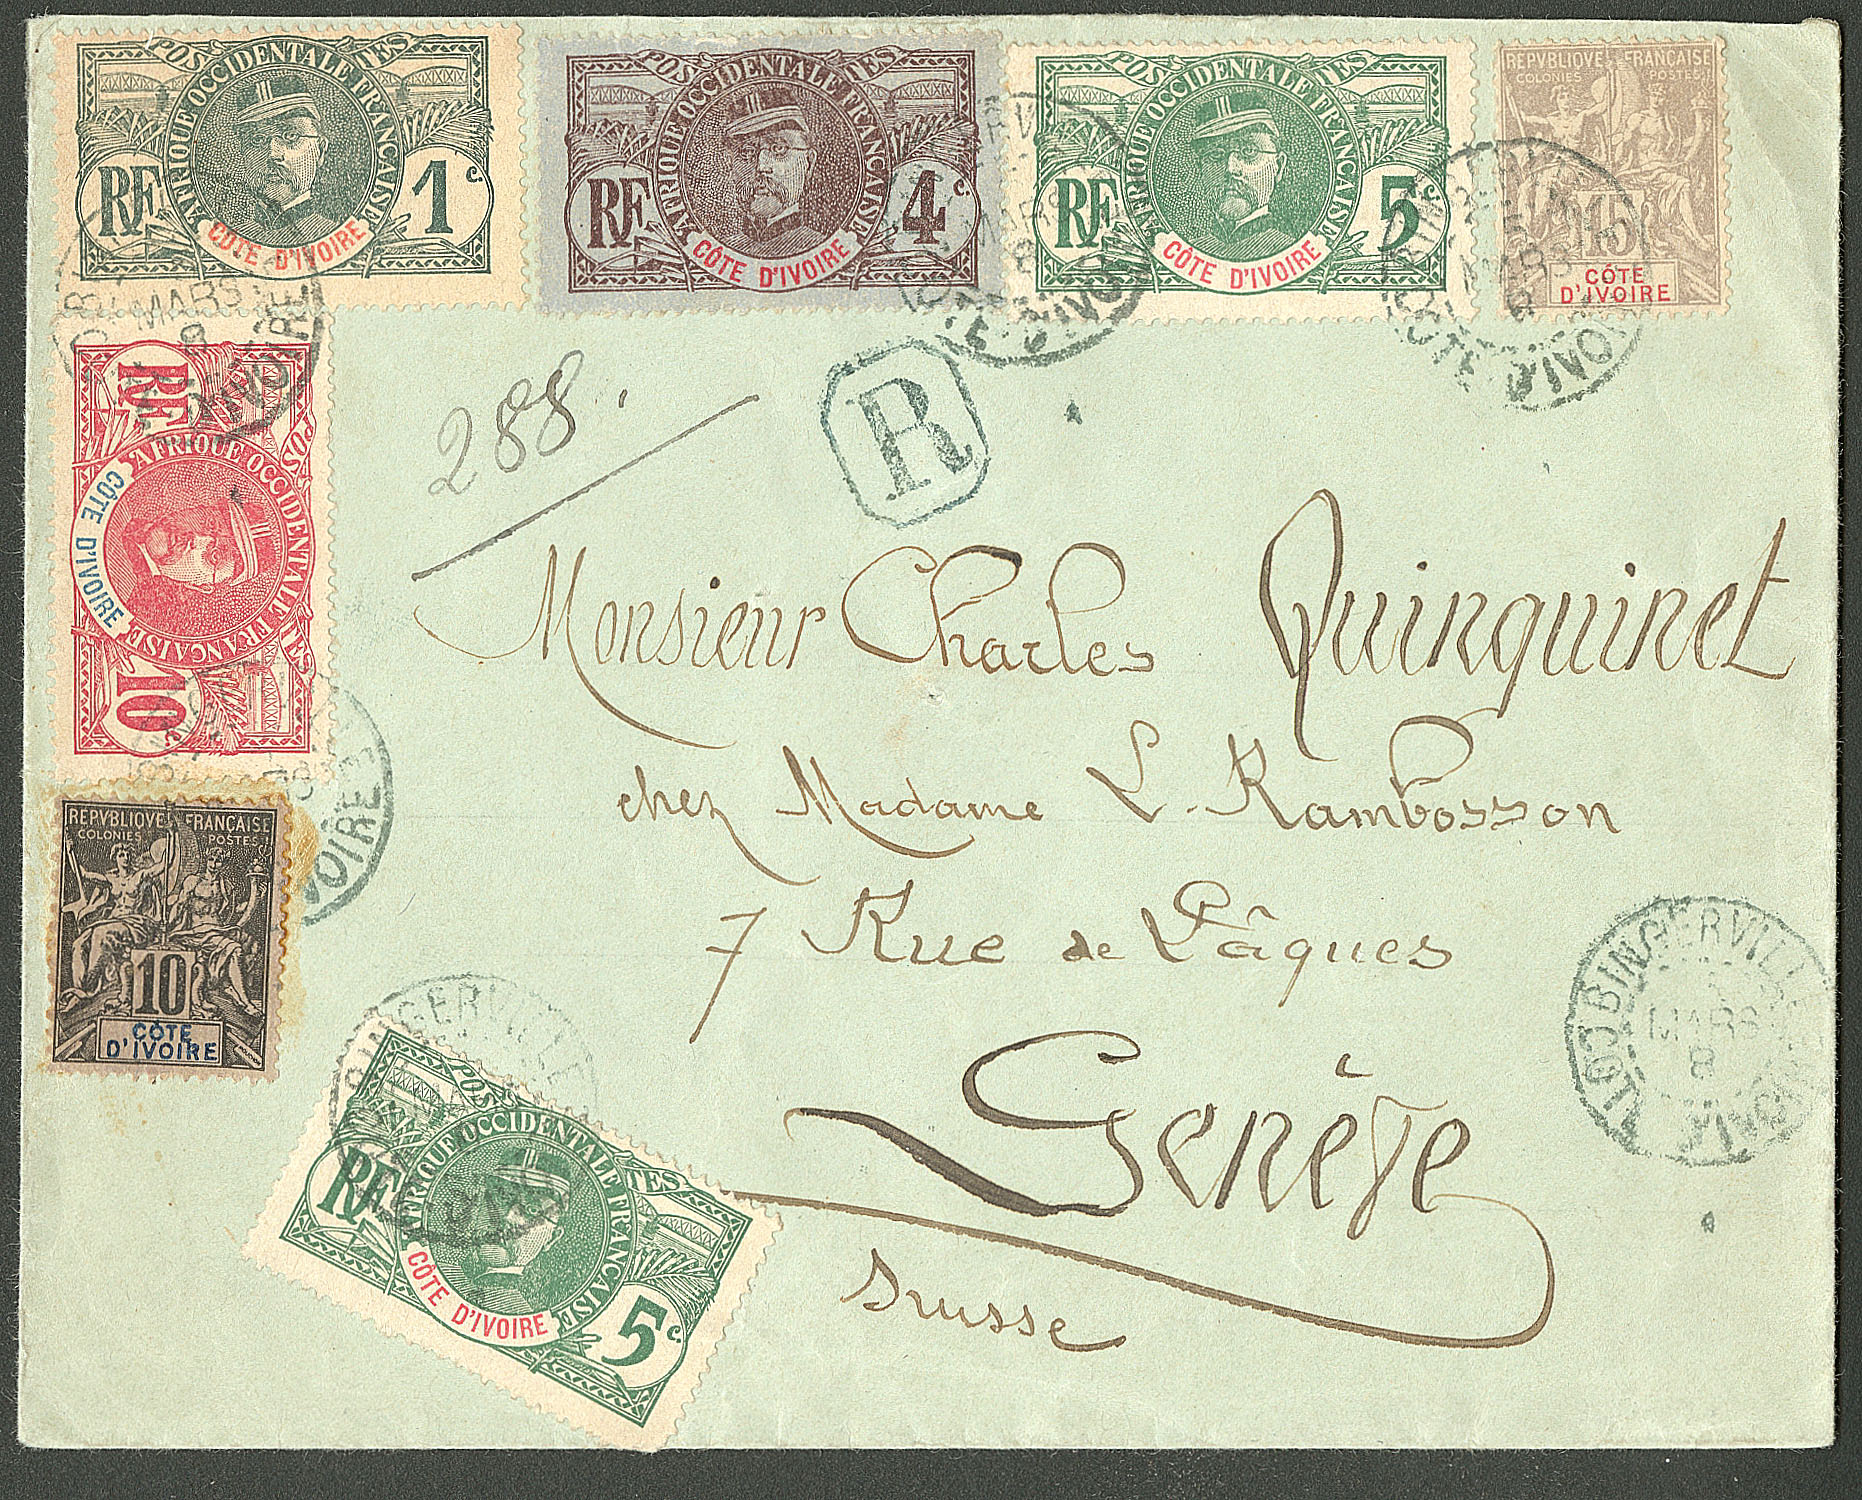 POSTES
AFRIQUE OCCIDENTALE FRANÇAISE
RF
1 c.
CÔTE D'IVOIRE
POSTES
AFRIQUE OCCIDENTALE FRANÇAISE
RF
4 c.
CÔTE D'IVOIRE
POSTES
AFRIQUE OCCIDENTALE FRANÇAISE
RF
5 c.
CÔTE D'IVOIRE
REPVBLIQVE FRANÇAISE
COLONIES POSTES
15
CÔTE
D'IVOIRE
MARS
8
D'IVOIRE
MARS
8
MARS
8
POSTES
AFRIQUE OCCIDENTALE FRANÇAISE
RF
10
CÔTE D'IVOIRE
288.
R
Monsieur Charles Quinquinet
chez Madame L. Rambosson
7 Rue de Pâques
Genève
Suisse
REPVBLIQVE FRANÇAISE
COLONIES POSTES
10
CÔTE
D'IVOIRE
BINGERVILLE
BINGERVILLE
MARS
8
POSTES
AFRIQUE OCCIDENTALE FRANÇAISE
RF
5 c.
CÔTE D'IVOIRE